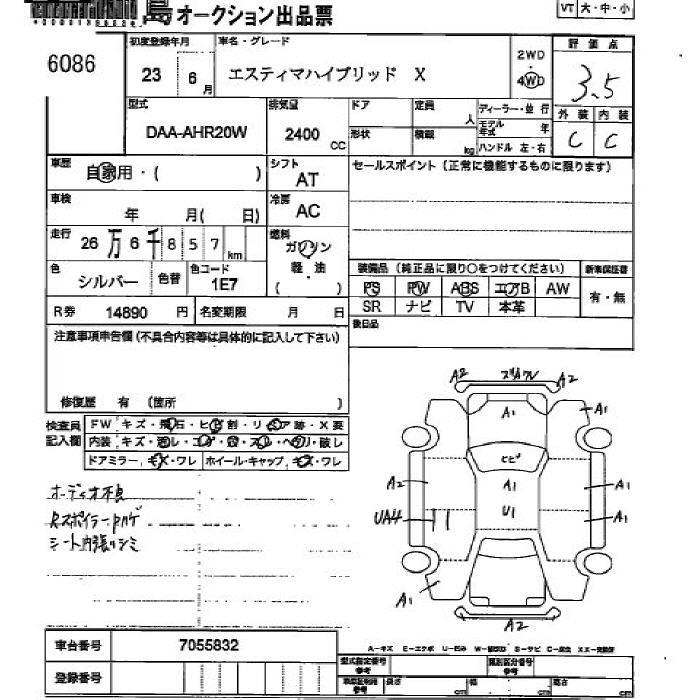 島オークション出品票
VT 大・中・小
6086
初度登録年月
車名・グレード
23 6月
エスティマハイブリッド X
2WD
4WD
評価点
3.5
型式
DAA-AHR20W
排気量
2400 CC
ドア
定員
人
形状
積載
kg
ディーラー・並行
モデル年式 年
ハンドル 左・右
外装 内装
C C
車歴
自家用・( )
シフト
AT
セールスポイント(正常に機能するものに限ります)
車検
年 月( 日)
冷房
AC
走行
26万6千857km
燃料
ガソリン
軽・油
( )
色
シルバー
色替
色コード
1E7
装備品(純正品に限り○をつけてください)
新車保証書
PS PW ABS エアB AW
有・無
SR ナビ TV 本革
R券 14890 円
名変期限 月 日
後日品
注意事項申告欄(不具合内容等は具体的に記入して下さい)
修復歴 有(箇所 )
検査員記入欄
FW キズ・飛石・ヒビ割・リペア跡・X要
内装 キズ・汚レ・コゲ・穴・スレ・ヘタリ・破レ
ドアミラー, キズ・ワレ
ホイール・キャップ, キズ・ワレ
オーディオ不良
Rスポイラー Pハゲ
シート内張りシミ
A2 スリキズ A2
A1 A1
ヒビ
A2 A1 A1
UA4 U1 A1
A1
A2
車台番号 7055832
A-キズ E-エクボ U-凹み
登録番号
型式指定番号
参考
類別区分番号
参考
長さ cm 幅 cm 高さ cm